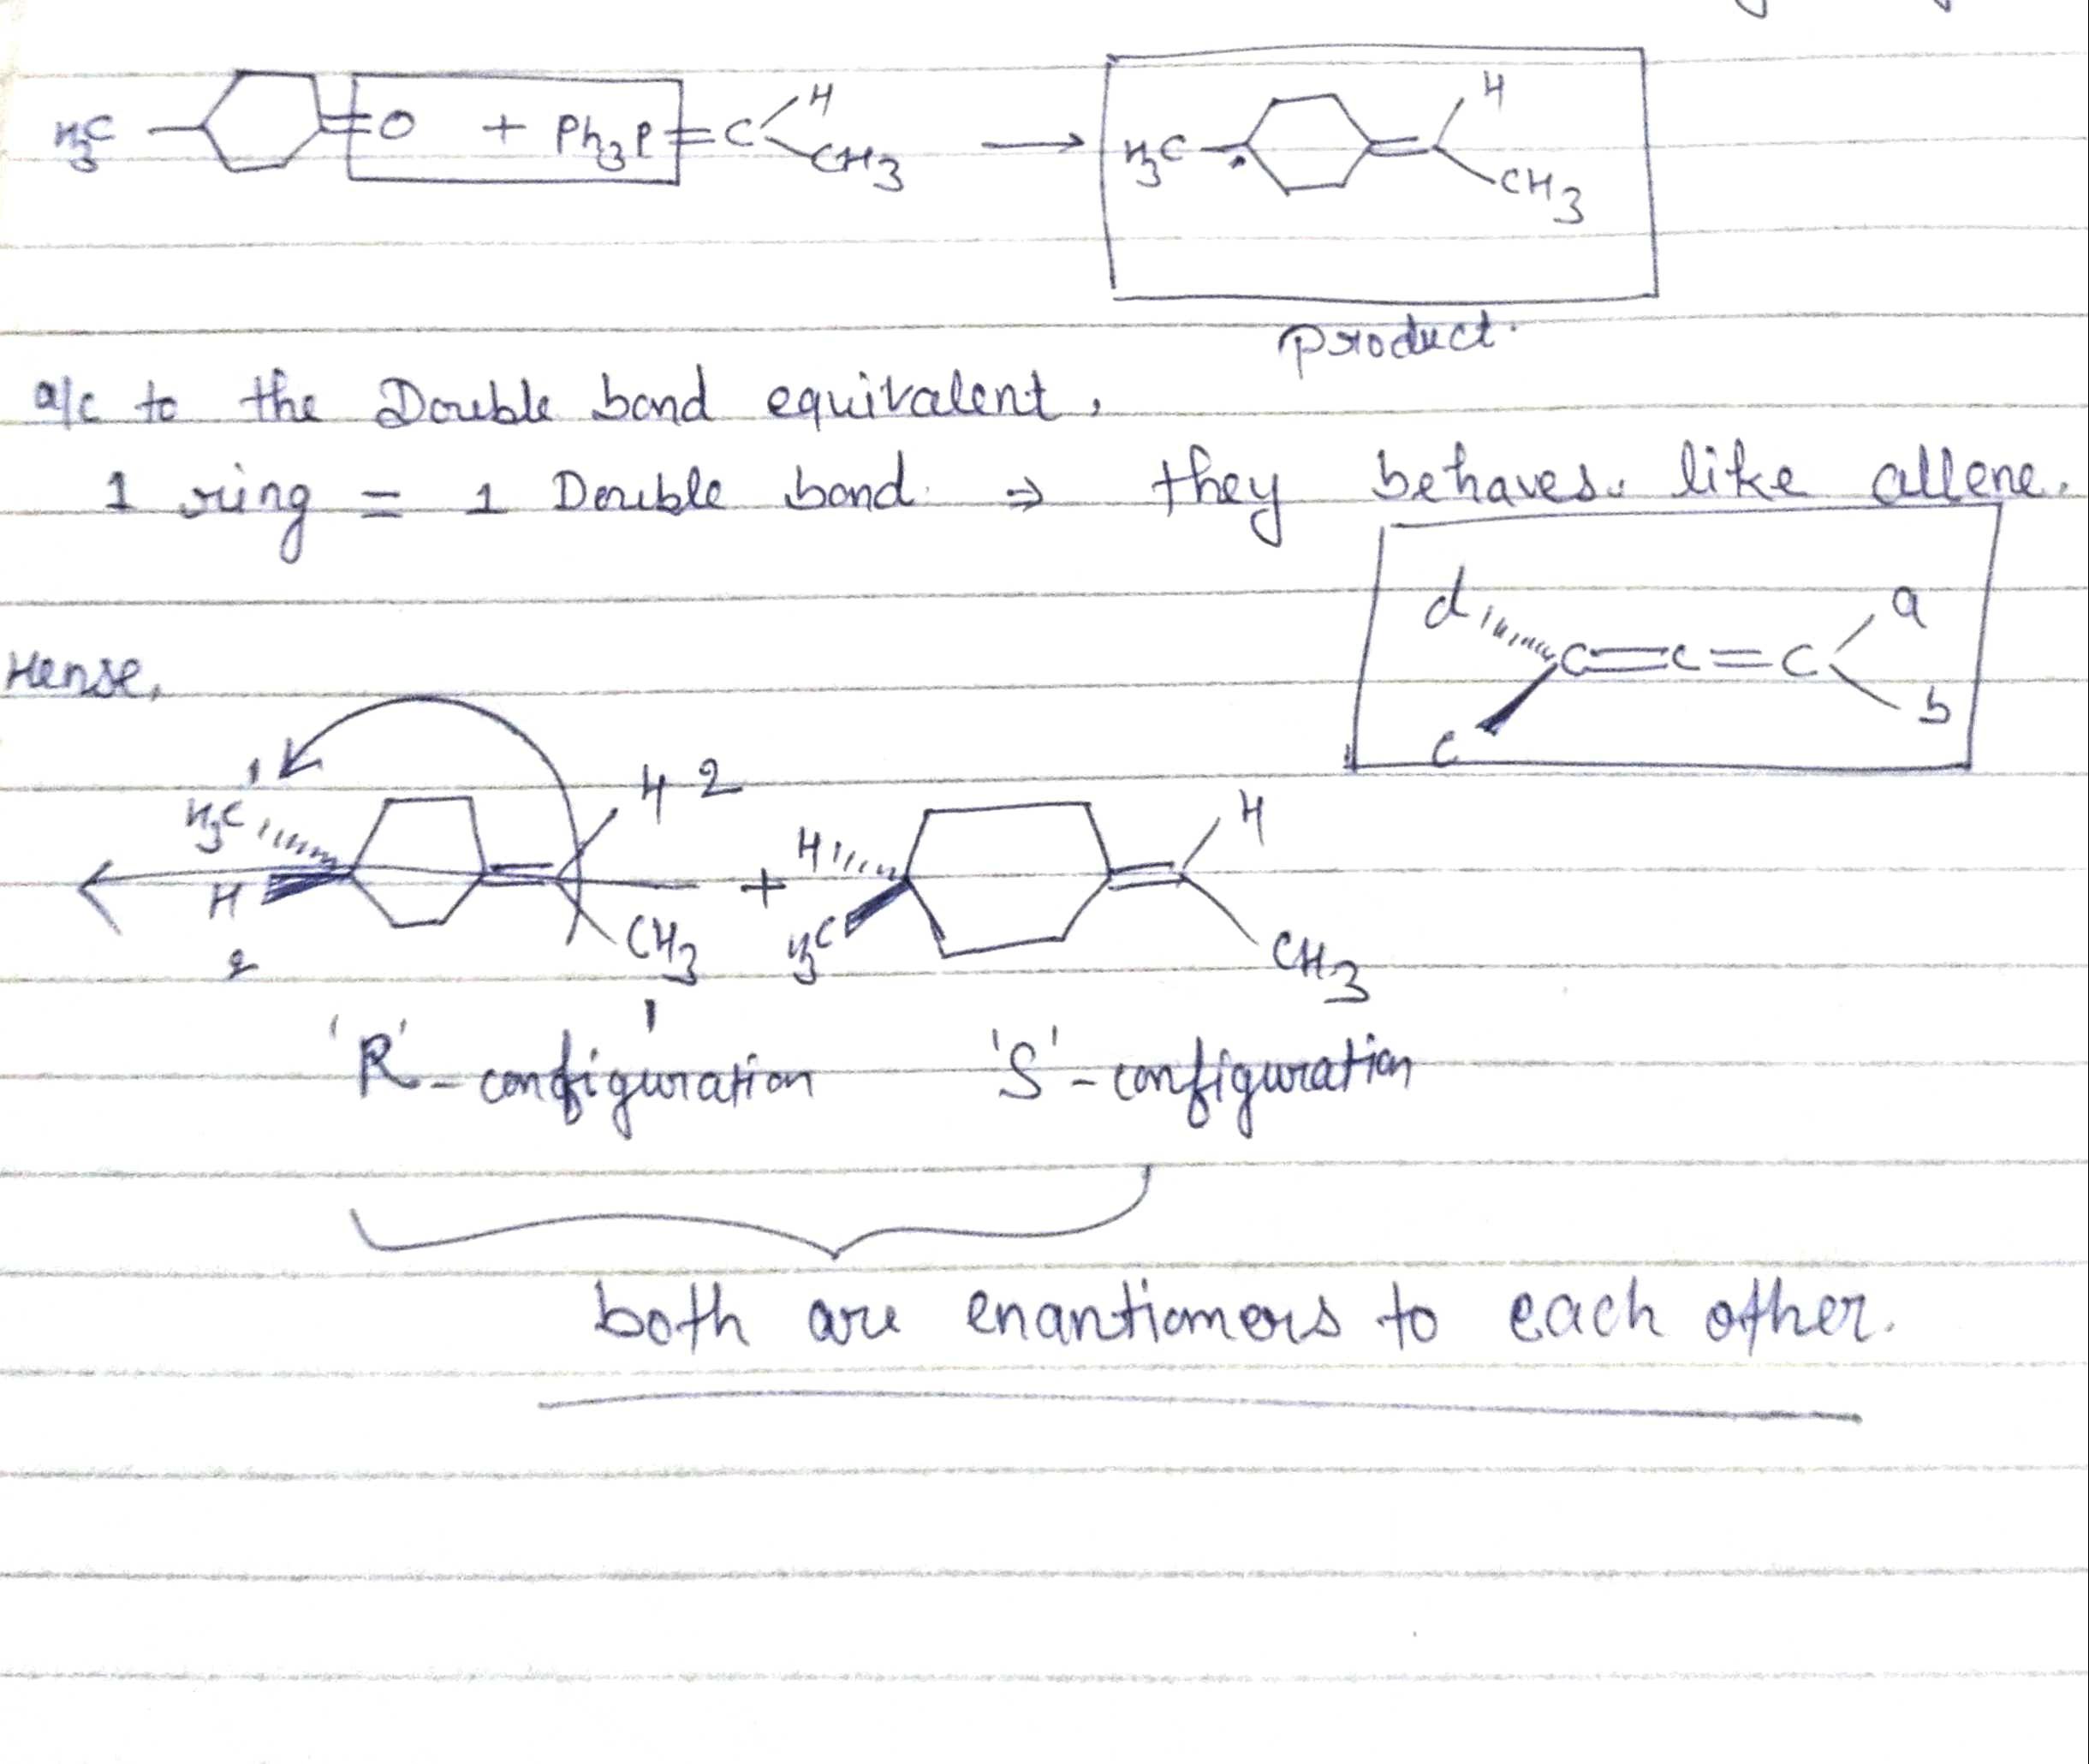 H3C =O + Ph3P=C H CH3 ⟶ H3C H CH3
product.
a/c to the Double bond equivalent,
1 ring = 1 Double bond. ⇒ they behaves. like allene.
d C=C=C a
c b
Hense,
1 H3C H 2 H H
H H3C
2 CH3 + CH3
1
'R'-configuration 'S'-configuration
both are enantiomers to each other.